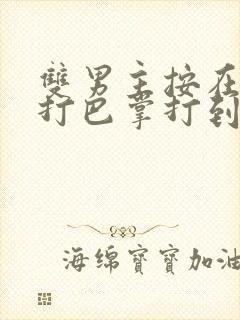 雙男主按在
打巴掌打到
海绵寶寶加油